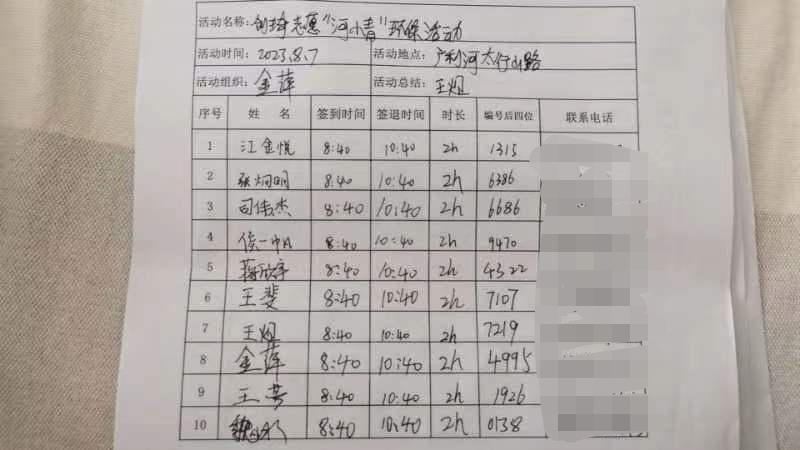 活动名称: 创琦志愿“河小青”环保活动
活动时间: 2023.8.7 活动地点: 广利河太行山路
活动组织: 金萍 活动总结: 王姐
序号 姓 名 签到时间 签退时间 时长 编号后四位 联系电话
1 江金悦 8:40 10:40 2h 1315
2 张炯明 8:40 10:40 2h 6386
3 司伟杰 8:40 10:40 2h 6686
4 侯一帆 8:40 10:40 2h 9470
5 蒋欣宇 8:40 10:40 2h 4322
6 王斐 8:40 10:40 2h 7107
7 王姐 8:40 10:40 2h 7219
8 金萍 8:40 10:40 2h 4995
9 王芳 8:40 10:40 2h 1926
10 8:40 10:40 2h 0138